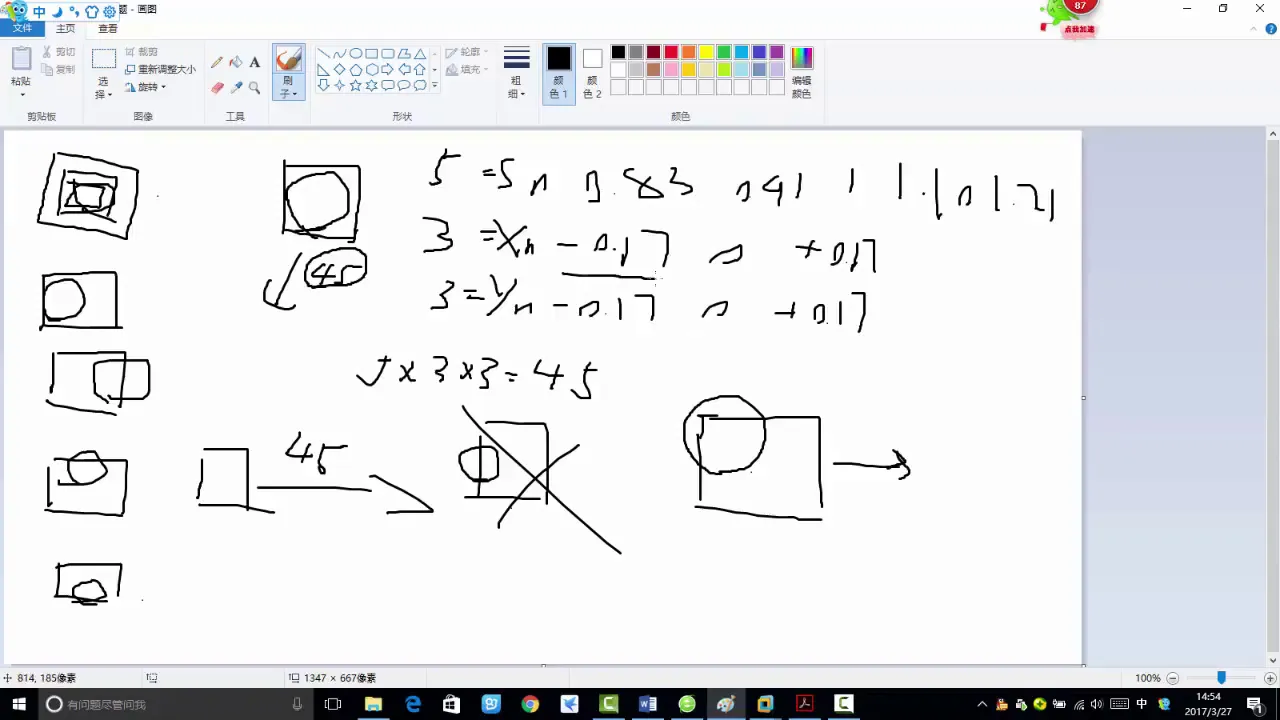 中
题 - 画图
87
点我加速
文件 主页 查看
粘贴 剪切 复制
选择 裁剪 重新调整大小 旋转
A
刷子
轮廓 填充
粗细
颜色 1 颜色 2
编辑颜色
剪贴板 图像 工具 形状 颜色
5 = Sn 0.83 0.91 1 1.10 1.21
3 = Xn -0.17 0 +0.17
45
3 = Yn -0.17 0 +0.17
5 x 3 x 3 = 45
45
814, 185像素 1347 × 667像素 100%
有问题尽管问我 中 14:54
2017/3/27